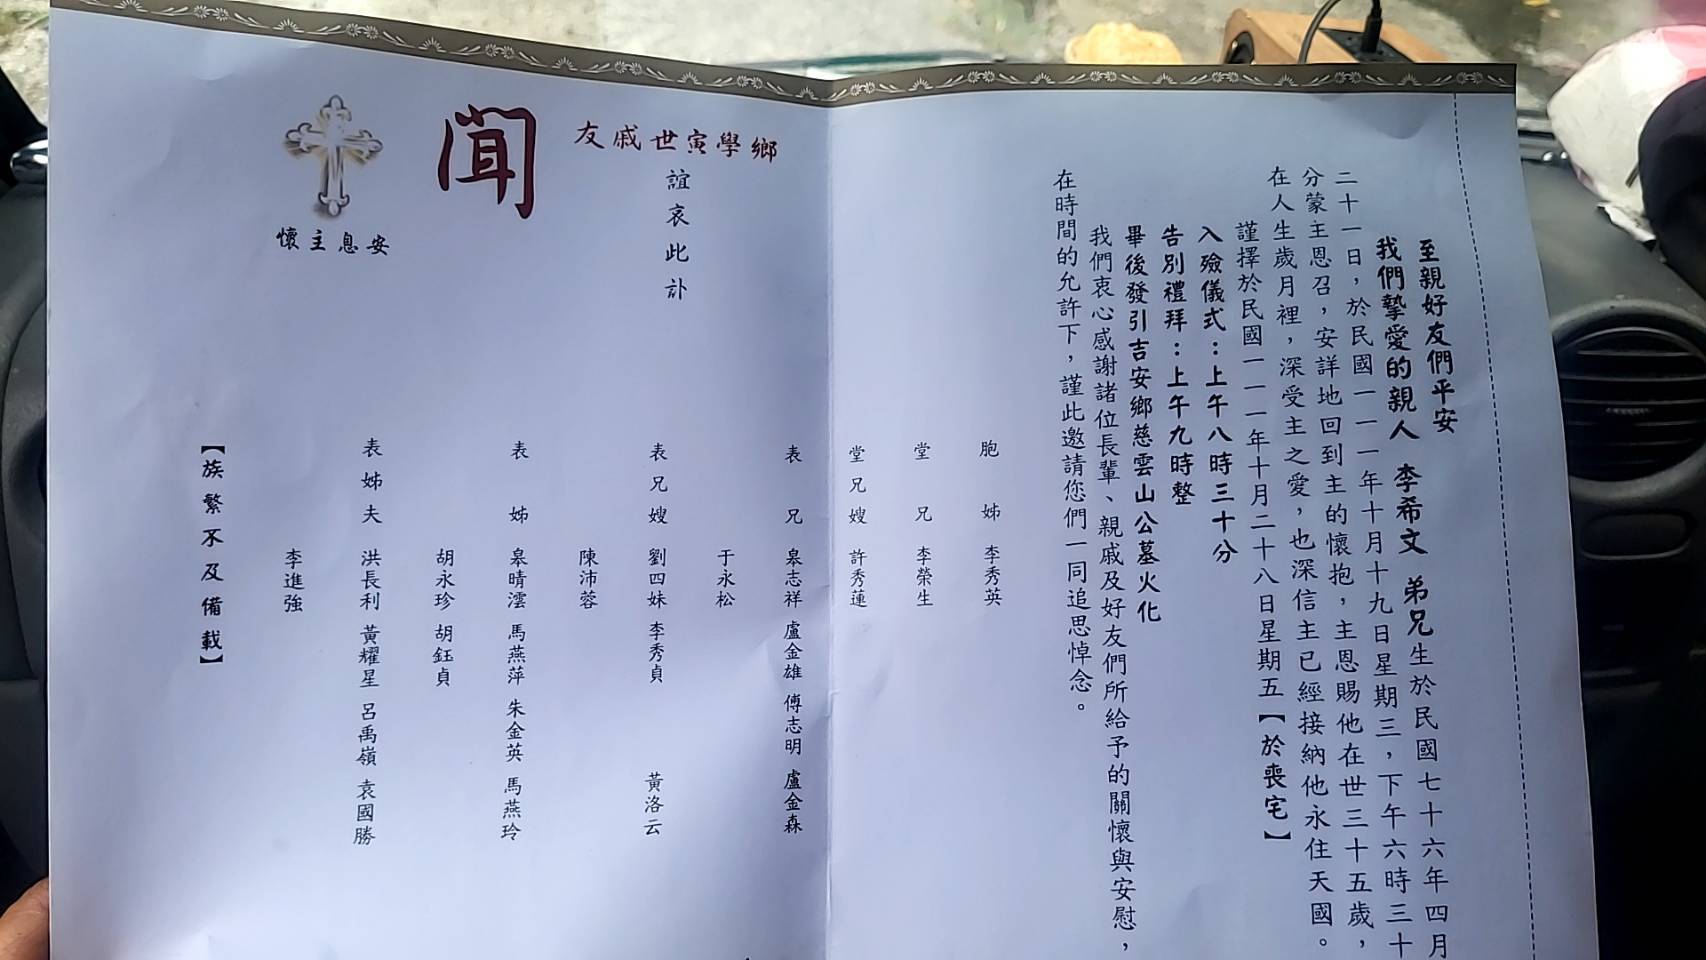 至親好友們平安
我們摯愛的親人 李希文 弟兄生於民國七十六年四月
二十一日，於民國一一一年十月十九日星期三，下午六時三十
分蒙主恩召，安詳地回到主的懷抱，主恩賜他在世三十五歲，
在人生歲月裡，深受主之愛，也深信主已經接納他永住天國。
謹擇於民國一一一年十月二十八日星期五【於喪宅】
入殮儀式：上午八時三十分
告別禮拜：上午九時整
畢後發引吉安鄉慈雲山公墓火化
我們衷心感謝諸位長輩、親戚及好友們所給予的關懷與安慰，
在時間的允許下，謹此邀請您們一同追思悼念。
胞姊 李秀英
堂兄 李榮生
堂兄嫂 許秀蓮
表兄 皋志祥 盧金雄 傅志明 盧金森
于永松
表兄嫂 劉四妹 李秀貞 黃洛云
陳沛蓉
表姊 皋晴澐 馬燕萍 朱金英 馬燕玲
胡永珍 胡鈺貞
表姊夫 洪長利 黃耀星 呂禹嶺 袁國勝
李進強
【族繁不及備載】
鄉學寅世戚友
誼哀此訃
聞
安息主懷